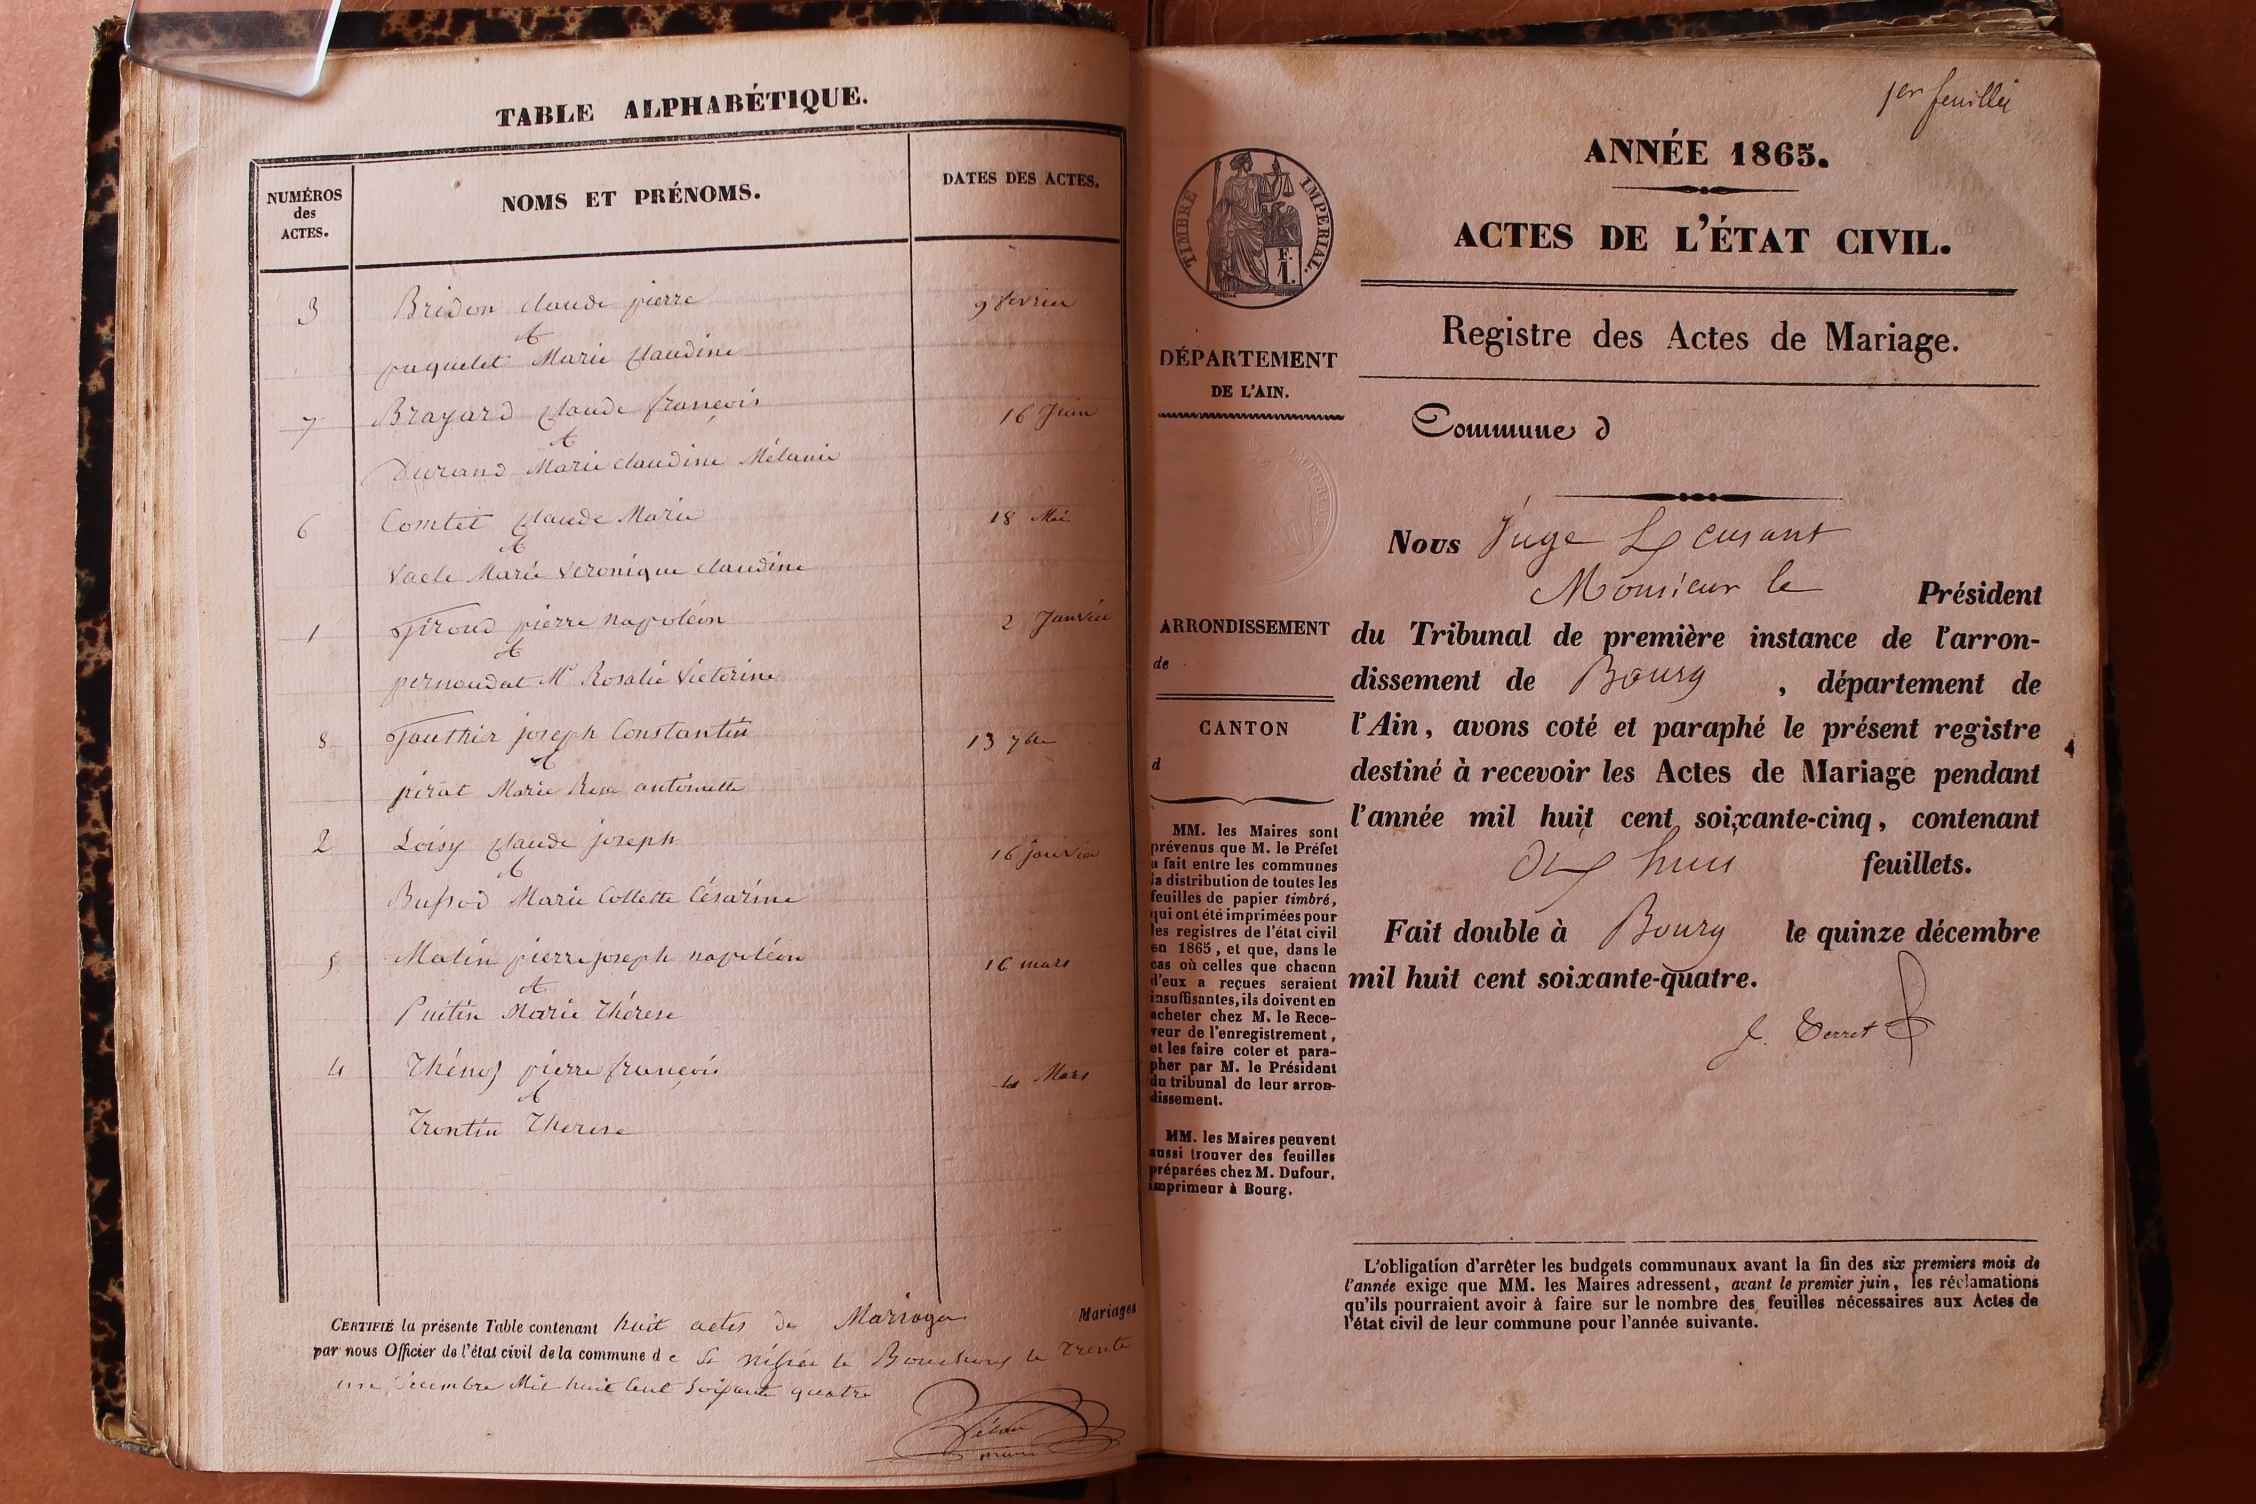 TABLE ALPHABÉTIQUE.
NUMÉROS
des
ACTES.
NOMS ET PRÉNOMS.
DATES DES ACTES.
3 Bridon claude pierre 9 février
&
puquelet Marie claudine
7 Brayard claude françois 16 Juin
&
Durand Marie claudine Mélanie
6 Comtet claude Marie 18 Mai
&
Vacle Marie Veronique claudine
1 Giroud pierre napoléon 2 Janvier
&
pernoudat Me Rosalie Victorine
8 Gauthier joseph Constantin 13 7bre
&
pirat Marie Rose antoinette
2 Loisy claude joseph 16 janvier
&
Bussod Marie Collette Césarine
5 Matin pierre joseph napoléon 16 mars
&
Puitin Marie Thérese
4 Thénoz pierre françois Mars
&
Trontin Therese
CERTIFIÉ la présente Table contenant huit actes de Mariages Mariages
par nous Officier de l'état civil de la commune de St nizier le Bouchoux le trente
une Decembre Mil huit Cent Soixante quatre
maire
1er feuillet
ANNÉE 1865.
ACTES DE L'ÉTAT CIVIL.
Registre des Actes de Mariage.
Commune d
TIMBRE IMPERIAL.
F.
1.
DÉPARTEMENT
DE L'AIN.
ARRONDISSEMENT
de
CANTON
d
MM. les Maires sont
prévenus que M. le Préfet
a fait entre les communes
la distribution de toutes les
feuilles de papier timbré,
qui ont été imprimées pour
les registres de l'état civil
en 1865, et que, dans le
cas où celles que chacun
d'eux a reçues seraient
insuffisantes, ils doivent en
acheter chez M. le Rece-
veur de l'enregistrement,
et les faire coter et para-
pher par M. le Président
du tribunal de leur arron-
dissement.
MM. les Maires peuvent
aussi trouver des feuilles
préparées chez M. Dufour,
imprimeur à Bourg.
Nous Juge
Monsieur le Président
du Tribunal de première instance de l'arron-
dissement de Bourg, département de
l'Ain, avons coté et paraphé le présent registre
destiné à recevoir les Actes de Mariage pendant
l'année mil huit cent soixante-cinq, contenant
dix huit feuillets.
Fait double à Bourg le quinze décembre
mil huit cent soixante-quatre.
J. Terret
L'obligation d'arrêter les budgets communaux avant la fin des six premiers mois de
l'année exige que MM. les Maires adressent, avant le premier juin, les réclamations
qu'ils pourraient avoir à faire sur le nombre des feuilles nécessaires aux Actes de
l'état civil de leur commune pour l'année suivante.